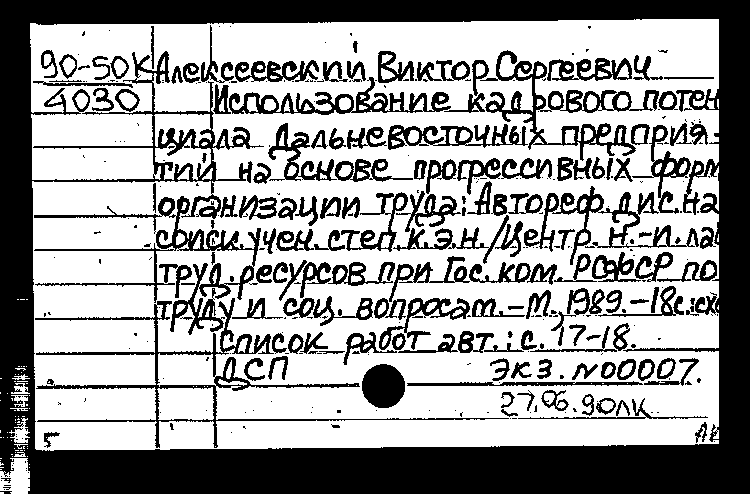 90-50К Алексеевский, Виктор Сергеевич
4030 Использование кадрового потен
циала дальневосточных предприя-
тий на основе прогрессивных форм
организации труда: Автореф. дис. на
соиск. учен. степ. к.э.н. /Центр. н.-и. ла
труд. ресурсов при Гос. ком. РСФСР по
труду и соц. вопросам. - М., 1989. - 18с.: сх
Список работ авт.: с. 17-18.
ДСП экз. N00007.
27.06.90 ЛК
5 АК